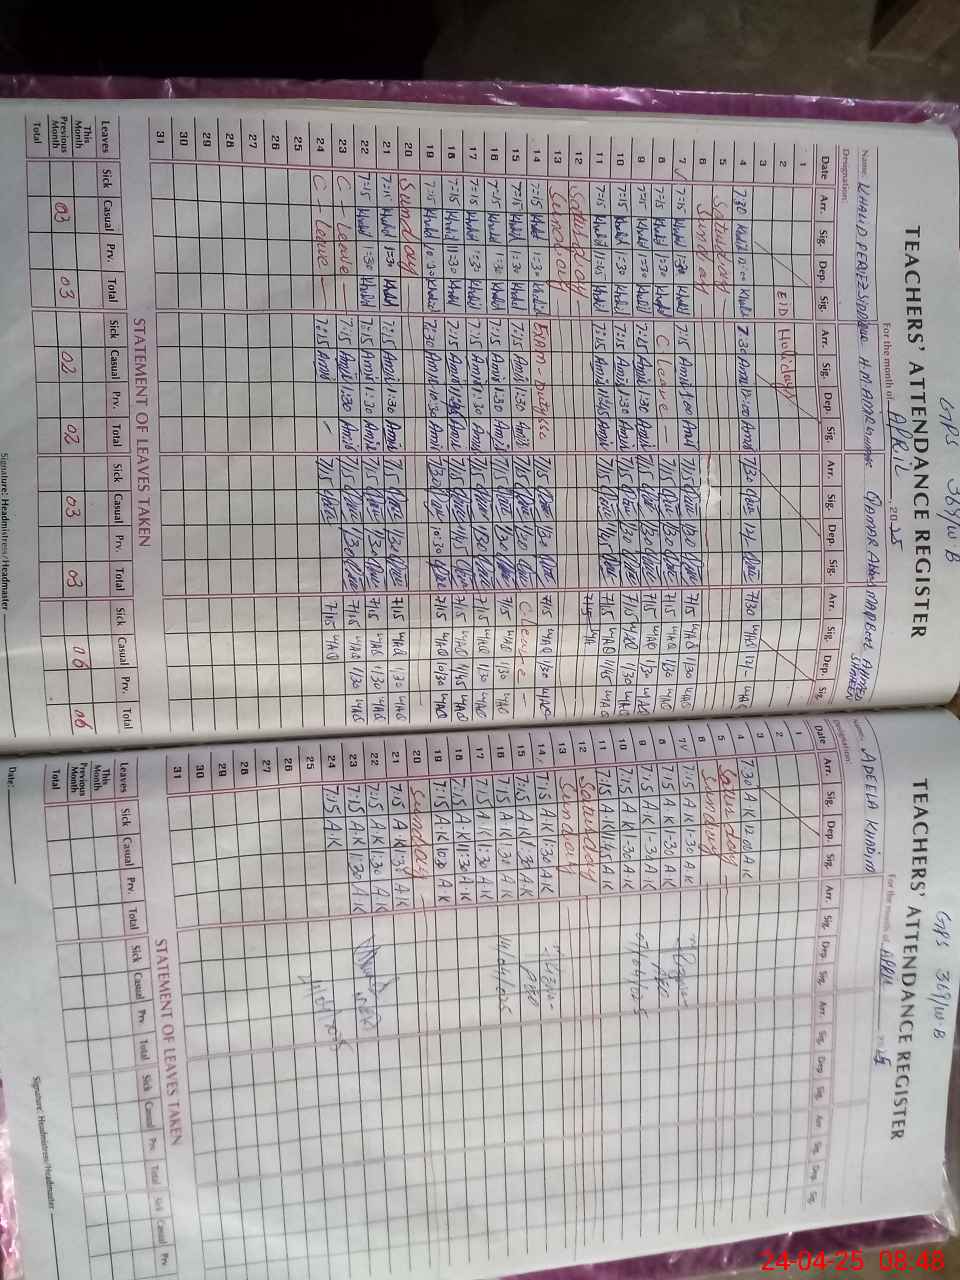 GPS 369/W.B
TEACHERS' ATTENDANCE REGISTER
For the month of APRIL 2025
Name: KHALID PERVEZ H.M. QAMAR Abbas MAQBOOL AHMED
Designation:
Date Arr. Sig. Dep. Sig. Arr. Sig. Dep. Sig. Arr. Sig. Dep. Sig. Arr. Sig. Dep. Sig.
1
2 EID Holidays
3
4 7:30 Khalid 12:00 Khalid 7:30 Amir 12:00 Amir 7/30 12/- 7/30 MAQ 12/- MAQ
5 Saturday
6 Sunday
7 7:15 Khalid 1:30 Khalid 7:15 Amir 1:00 Amir 7/15 1/30 7/15 MAQ 1/30 MAQ
8 7:15 Khalid 1:30 Khalid C Leave - 7/15 1/30 7/15 MAQ 1/30 MAQ
9 7:15 Khalid 1:30 Khalid 7:15 Amir 1:30 Amir 7/15 1/30 7/15 MAQ 1/30 MAQ
10 7:15 Khalid 1:30 Khalid 7:15 Amir 1:30 Amir 7/15 1/30 7/15 MAQ 1/30 MAQ
11 7:15 Khalid 11:45 Khalid 7:15 Amir 11:45 Amir 7/15 11/45 7/15 MAQ 11/45 MAQ
12 Saturday 7/15
13 Sunday
14 7:15 Khalid 1:30 Khalid Exam-Duty 7/15 1/30 7/15 MAQ 1/30 MAQ
15 7:15 Khalid 1:30 Khalid 7:15 Amir 1:30 Amir 7/15 1/30 C Leave -
16 7:15 Khalid 1:30 Khalid 7:15 Amir 1:30 Amir 7/15 1/30 7/15 MAQ 1/30 MAQ
17 7:15 Khalid 1:30 Khalid 7:15 Amir 1:30 Amir 7/15 1/30 7/15 MAQ 1/30 MAQ
18 7:15 Khalid 11:30 Khalid 7:15 Amir 11:30 Amir 7/15 11/45 7/15 MAQ 11/45 MAQ
19 7:15 Khalid 10:30 Khalid 7:30 Amir 10:30 Amir 7/30 10:30 7/15 MAQ 10/30 MAQ
20 Sunday
21 7:15 Khalid 1:30 Khalid 7:15 Amir 1:30 Amir 7/15 1/30 7/15 MAQ 1/30 MAQ
22 7:15 Khalid 1:30 Khalid 7:15 Amir 1:30 Amir 7/15 1/30 7/15 MAQ 1/30 MAQ
23 C - Leave - 7:15 Amir 1:30 Amir 7/15 1/30 7/15 MAQ 1/30 MAQ
24 C - Leave - 7:15 Amir 7/15 7/15 MAQ
25
26
27
28
29
30
31
STATEMENT OF LEAVES TAKEN
Leaves Sick Casual Prv. Total Sick Casual Prv. Total Sick Casual Prv. Total Sick Casual Prv. Total
This Month
Previous Month 03 03 02 02 03 03 06 06
Total
Signature: Headmistress/Headmaster
GPS 369/W.B
TEACHERS' ATTENDANCE REGISTER
For the month of APRIL 2025
Name: ADEELA KHADIM
Designation:
Date Arr. Sig. Dep. Sig. Arr. Sig. Dep. Sig. Arr. Sig. Dep. Sig. Arr. Sig. Dep. Sig.
1
2
3
4 7:30 A.K 12:00 A.K
5 Saturday
6 Sunday
7 7:15 A.K 1:30 A.K
8 7:15 A.K 1:30 A.K
9 7:15 A.K 1:30 A.K 07/04/25
10 7:15 A.K 1:30 A.K
11 7:15 A.K 11:45 A.K
12 Saturday
13 Sunday
14 7:15 A.K 1:30 A.K
15 7:15 A.K 1:30 A.K
16 7:15 A.K 1:30 A.K 14/04/2025
17 7:15 A.K 1:30 A.K
18 7:15 A.K 11:30 A.K
19 7:15 A.K 10:30 A.K
20 Sunday
21 7:15 A.K 1:30 A.K
22 7:15 A.K 1:30 A.K
23 7:15 A.K 1:30 A.K
24 7:15 A.K
25
26
27
28
29
30
31
STATEMENT OF LEAVES TAKEN
Leaves Sick Casual Prv. Total Sick Casual Prv. Total Sick Casual Prv. Total Sick Casual Prv
This Month
Previous Month
Total
Date: Signature: Headmistress/Headmaster
24-04-25 08:48